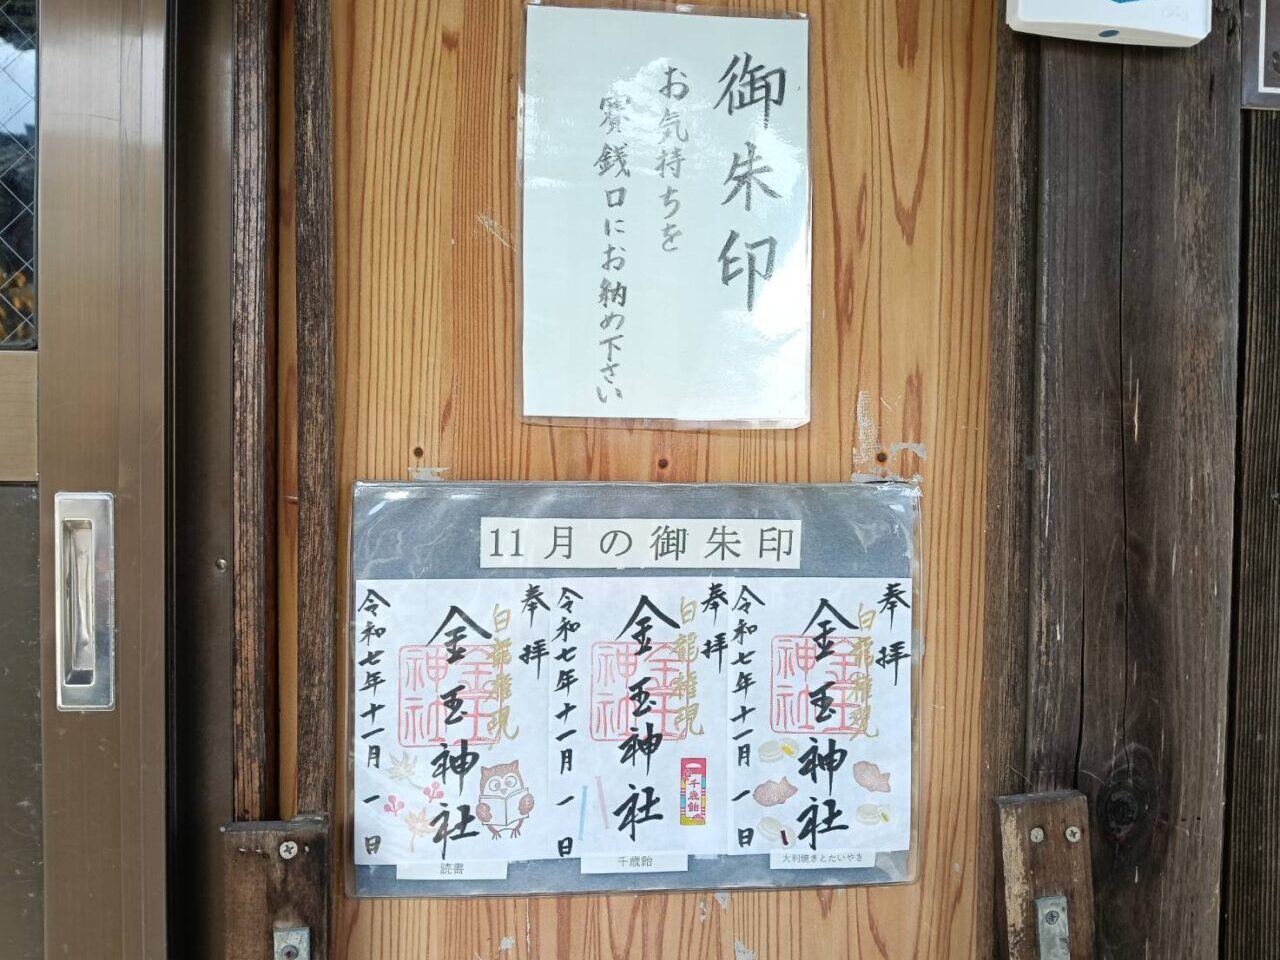 御朱印
お気持ちを
賽銭口にお納め下さい
11月の御朱印
奉拝
白龍権現
金玉神社
金玉神社
令和七年十一月一日
読書
奉拝
白龍権現
金玉神社
金玉神社
千歳飴
令和七年十一月一日
千歳飴
奉拝
白龍権現
金玉神社
金玉神社
令和七年十一月一日
大判焼きとたいやき